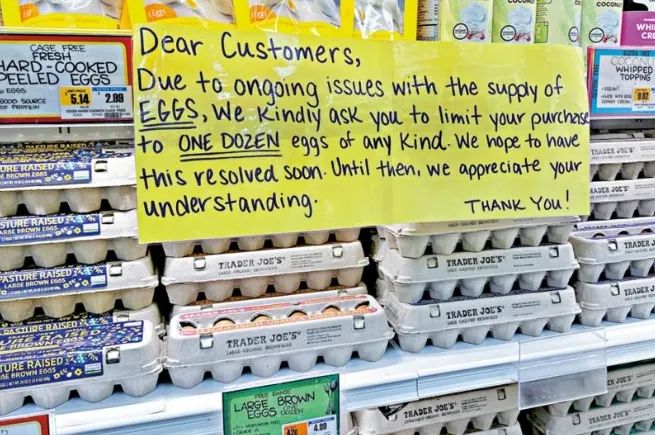 Dear Customers,
Due to ongoing issues with the supply of
EGGS, We Kindly ask you to limit your purchase
to ONE DOZEN eggs of any Kind. We hope to have
this resolved soon. Until then, we appreciate your
understanding.
THANK YOU!
CAGE FREE
FRESH
HARD-COOKED
PEELED EGGS
6 EGGS
GOOD SOURCE
OF PROTEIN
5.14
2.09
COCONUT
WHIPPED
TOPPING
VEGAN
9.92
PASTURE RAISED
LARGE BROWN EGGS
PASTURE RAISED
LARGE BROWN EGGS
PASTURE RAISED
LARGE BROWN EGGS
TRADER JOE'S
TRADER JOE'S
TRADER JOE'S
LARGE ORGANIC BROWN EGGS
TRADER JOE'S
TRADER JOE'S
TRADER JOE'S
TRADER JOE'S
TRADER JOE'S
FREE RANGE
LARGE BROWN
EGGS ONE DOZEN
GRADE A
4.99
TRADER JOE'S
TRADER JOE'S
TRADER JOE'S
TRADER JOE'S